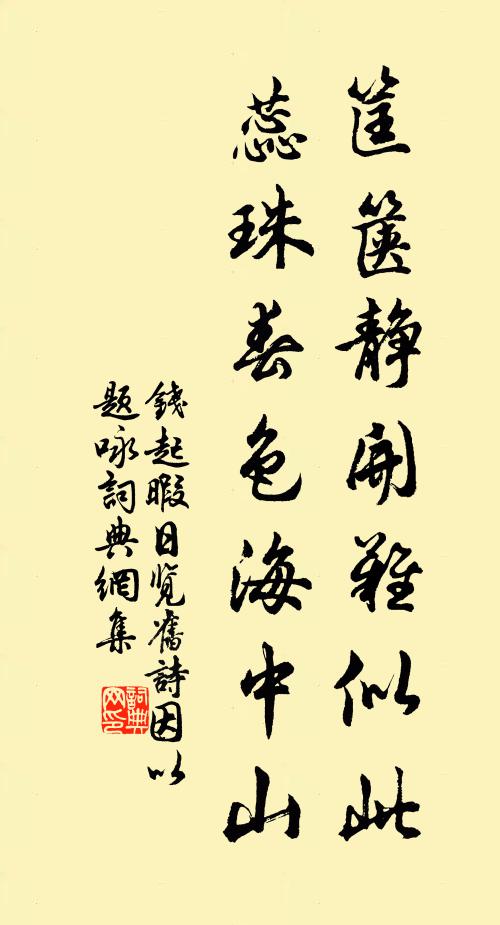 筐篋靜開難似此
蕊珠春色海中山
錢起暇日覽舊詩因以
題咏詞典網集
詞典
网印